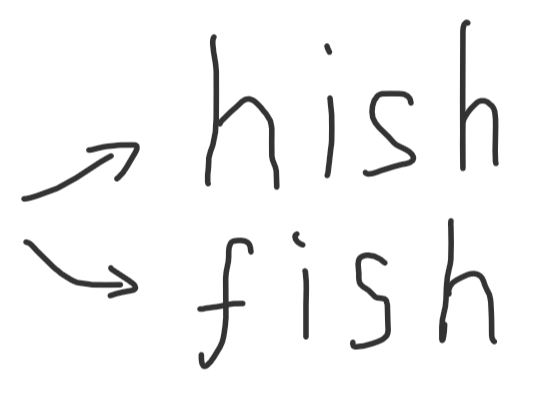 hish
fish